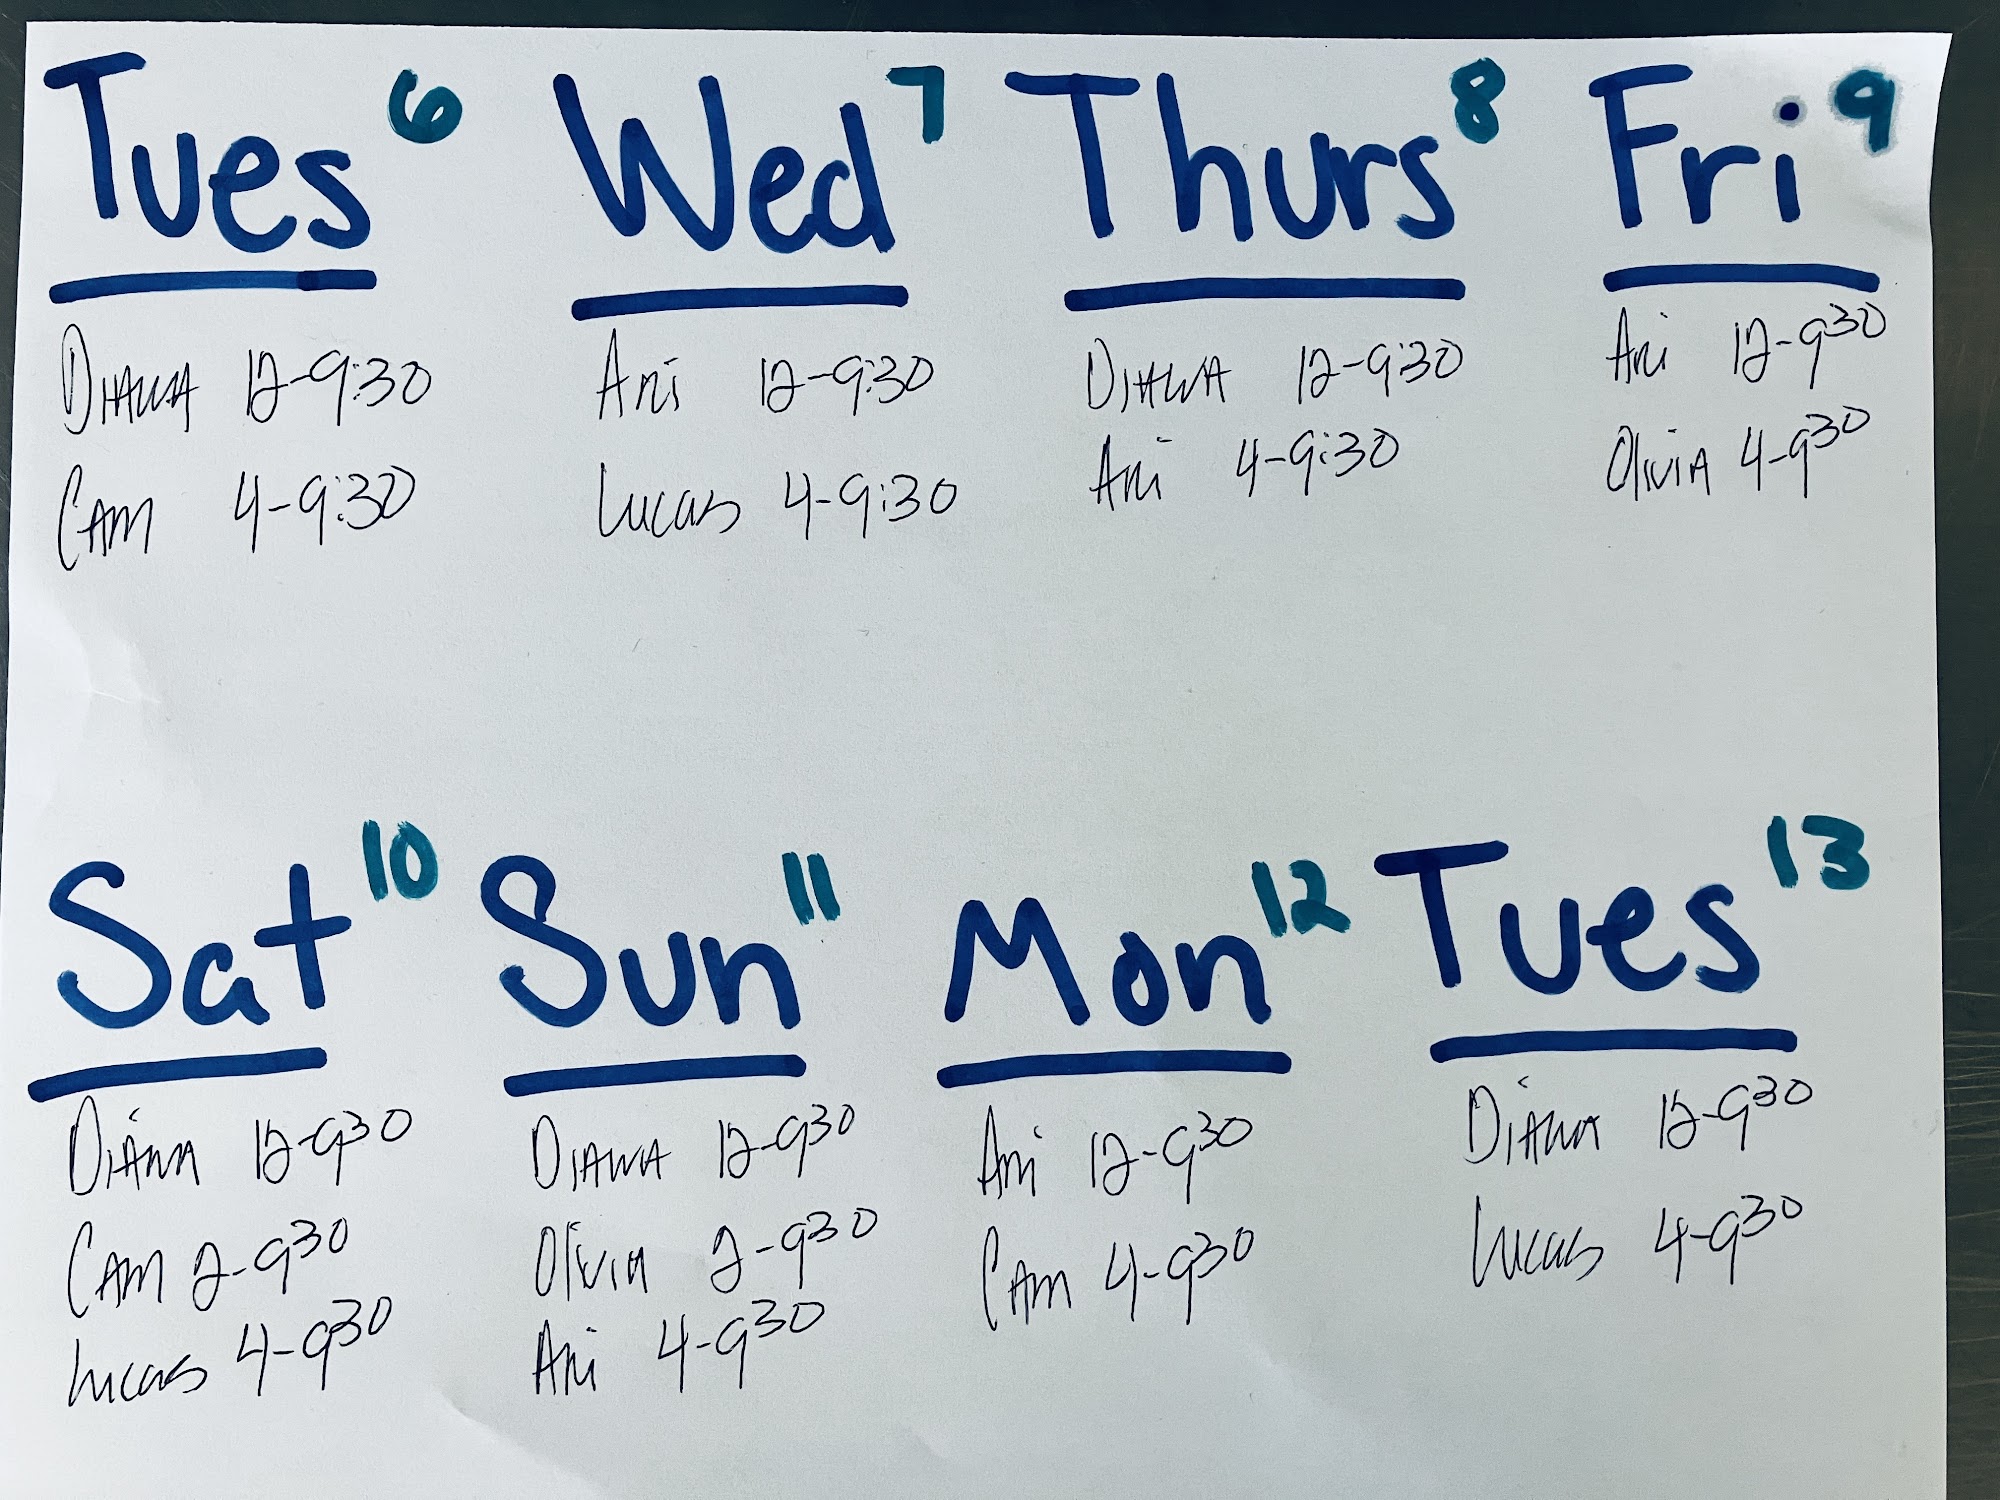 Tues 6
Diana 12-9:30
Cam 4-9:30
Wed 7
Ani 12-9:30
Lucas 4-9:30
Thurs 8
Diana 12-9:30
Ani 4-9:30
Fri 9
Ani 12-930
Olivia 4-930
Sat 10
Diana 12-930
Cam 2-930
Lucas 4-930
Sun 11
Diana 12-930
Olivia 2-930
Ani 4-930
Mon 12
Ani 12-930
Cam 4-930
Tues 13
Diana 12-930
Lucas 4-930